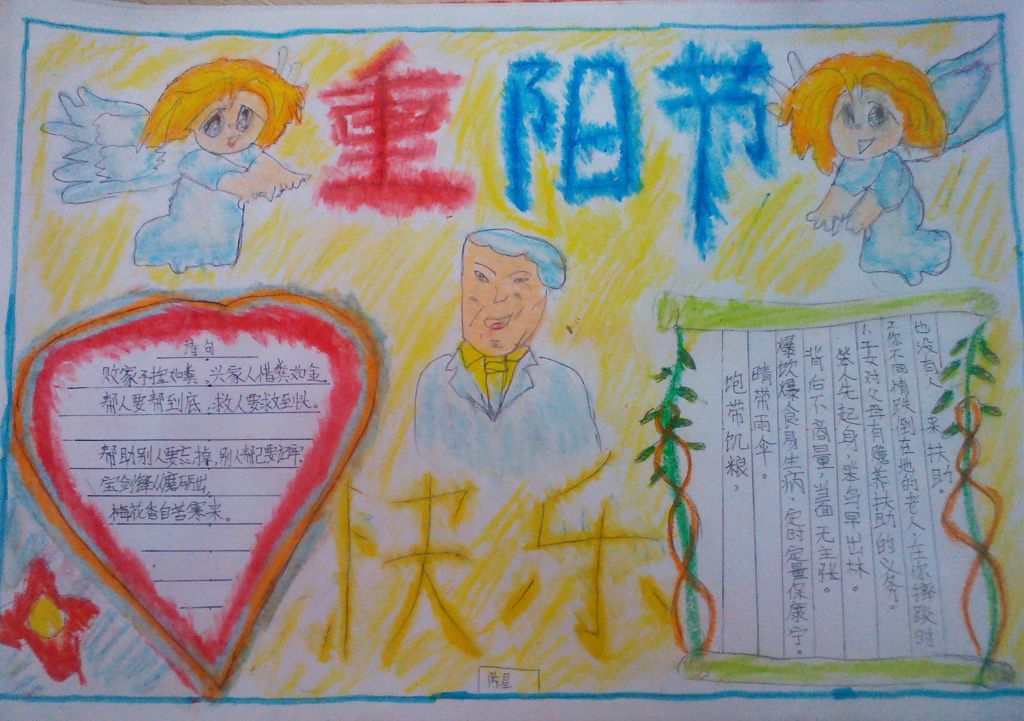 重阳节
快乐
诗句
败家子挥如粪,兴家人惜粪如金
帮人要帮到底,救人要救到头。
帮助别人要忘掉,别人帮己要记牢
宝剑锋从磨砺出,
梅花香自苦寒来。
也没有人来扶助。
2.你不同情跌到在地的老人,在你摔跤时
1.子女对父母有赡养扶助的义务。
笨人先起身,笨鸟早出林。
背后不商量当面无主张。
爆饮爆食易生病,定时定量保康宁。
晴带雨伞。
饱带饥粮、